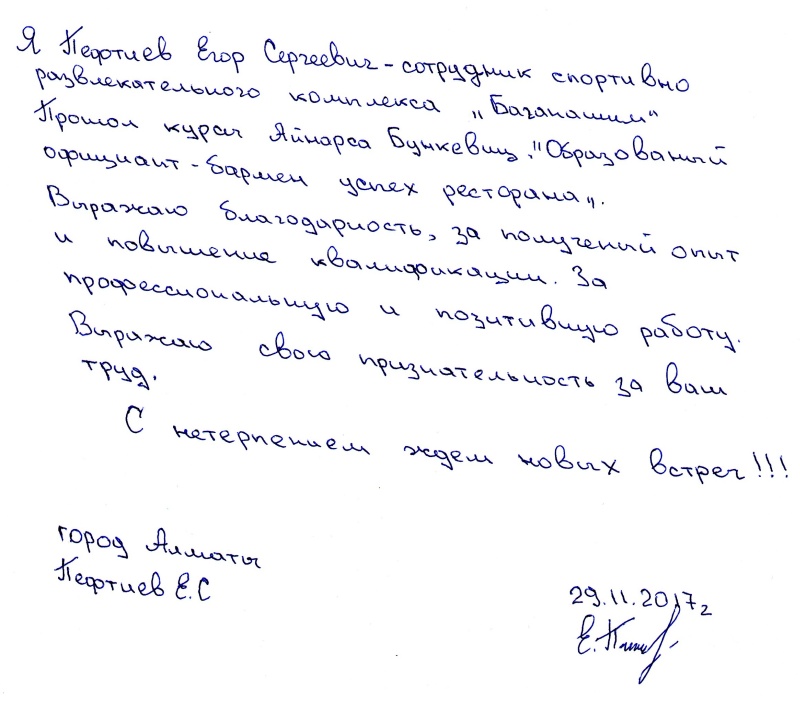 Я Пефтиев Егор Сергеевич - сотрудник спортивно
развлекательного комплекса „Баганашим“
Прошол курсы Айнарса Бункевиц. "Образованый
официант - бармен успех ресторана„.
Выражаю благодарность, за полученый опыт
и повышение квалификации. За
профессиональную и позитивную работу.
Выражаю свою признательность за ваш
труд.
С нетерпением ждем новых встреч!!!
город Алматы
Пефтиев Е.С
29.11.2017г